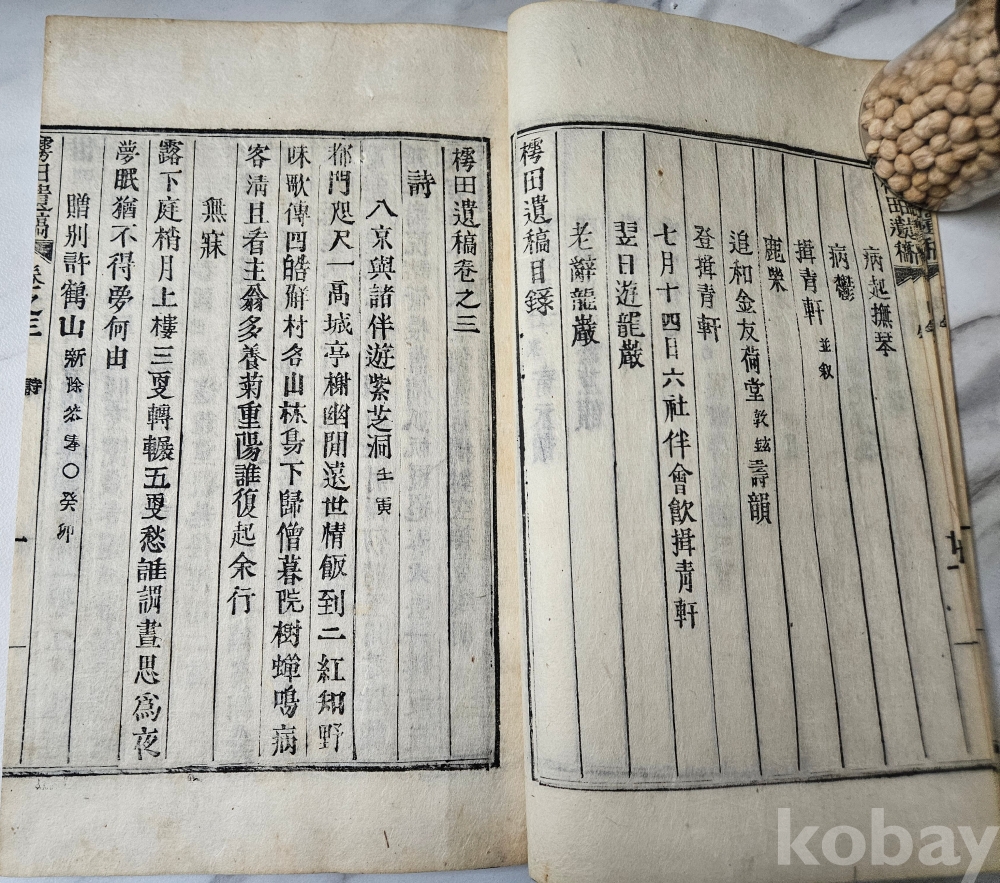 樗田遺稿
病起撫琴
病鬱
揖青軒 並叙
鹿柴
追和金友荷堂 敦鉉 壽韻
登揖青軒
七月十四日六社伴會飮揖青軒
翌日遊龍巖
老辭龍巖
樗田遺稿目錄
樗田遺稿卷之三
詩
八京與諸伴遊紫芝洞 壬寅
都門咫尺一高城亭榭幽閒遠世情飯到二紅知野
味歌傳四皓解村名山林鳥下歸僧暮院樹蟬鳴病
客清且看主翁多養菊重陽誰復起余行
無寐
露下庭梢月上樓三更轉輾五更愁誰謂晝思爲夜
夢眠猶不得夢何由
贈別許鶴山 新除叅奉 ○癸卯
樗田遺稿 卷之三 詩 一
kobay